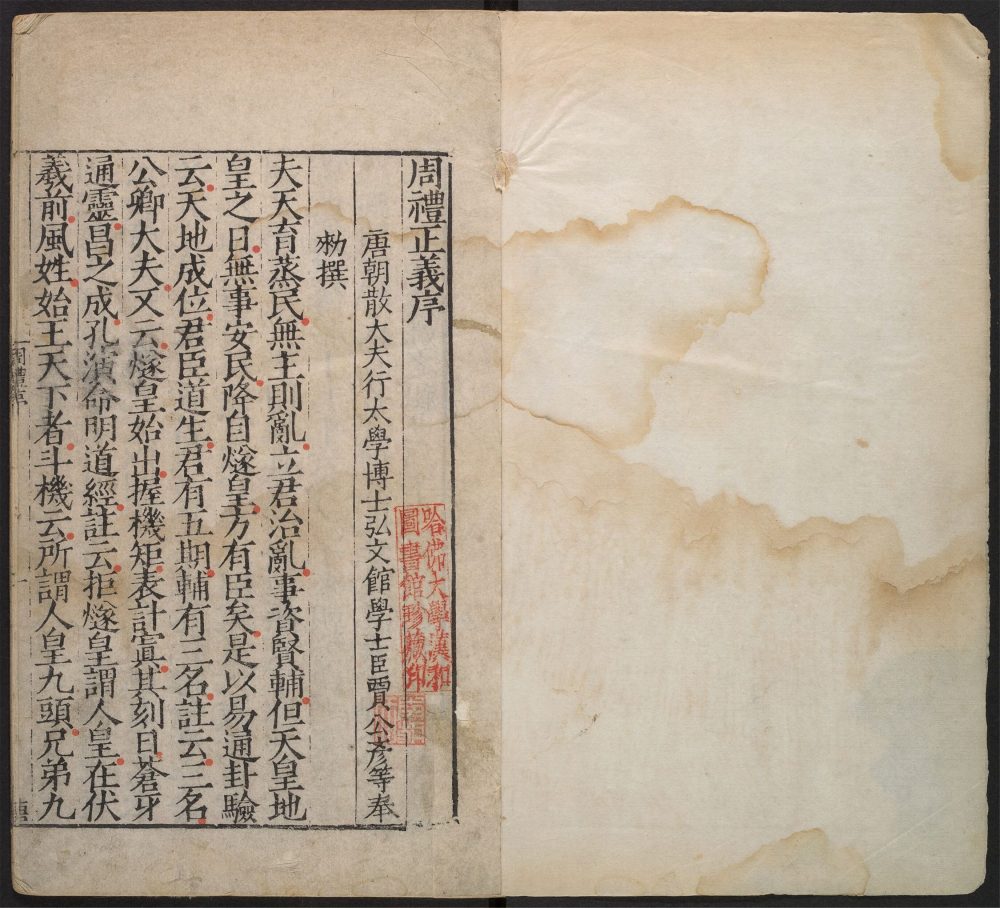 周禮正義序
唐朝散大夫行太學博士弘文館學士臣賈公彥等奉
勑撰
夫天育蒸民無主則亂立君治亂事資賢輔但天皇地
皇之日無事安民降自燧皇方有臣矣是以易通卦驗
云天地成位君臣道生君有五期輔有三名註云三名
公卿大夫又云燧皇始出握機矩表計寘其刻曰蒼牙
通靈昌之成孔演命明道經註云拒燧皇謂人皇在伏
羲前風姓始王天下者斗機云所謂人皇九頭兄弟九
周禮序
一
哈佛大學漢和
圖書館珍藏印